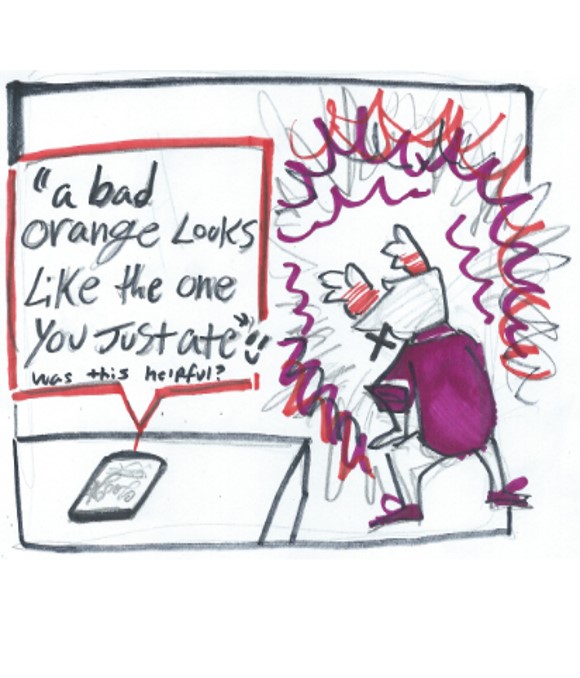 "a bad
orange Looks
Like the one
you Just ate"
was this helpful?